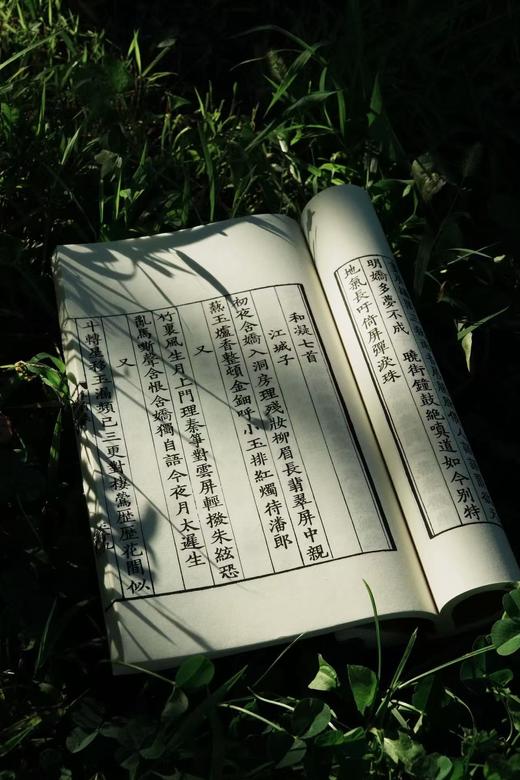 明嬌多夢不成　曉街鐘鼓絕嗔道如今別特
地氣長吁倚屏彈淚珠
和凝七首
江城子
初夜含嬌入洞房理殘妝柳眉長翡翠屏中親
爇玉爐香整頓金鈿呼小玉排紅燭待潘郎
又
竹裏風生月上門理秦箏對雲屏輕撥朱絃恐
亂馬嘶聲含恨含嬌獨自語今夜月太遲生
又
斗轉星移玉漏頻已三更對棲鶯歷歷花間似